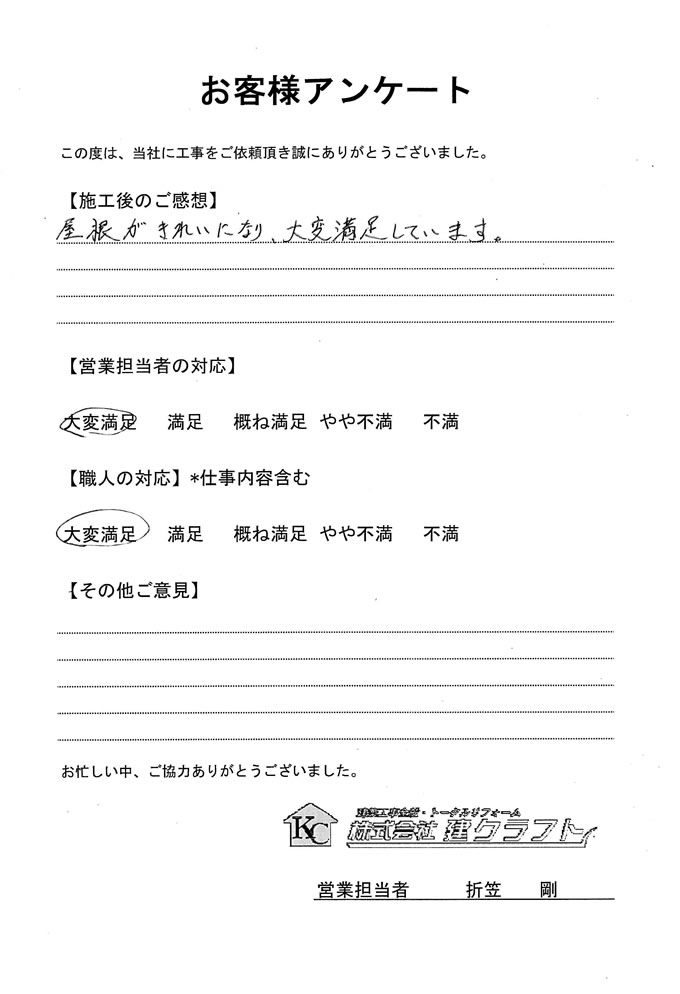 お客様アンケート
この度は、当社に工事をご依頼頂き誠にありがとうございました。
【施工後のご感想】
屋根がきれいになり、大変満足しています。
【営業担当者の対応】
大変満足 満足 概ね満足 やや不満 不満
【職人の対応】*仕事内容含む
大変満足 満足 概ね満足 やや不満 不満
【その他ご意見】
お忙しい中、ご協力ありがとうございました。
建築工事全般・トータルリフォーム
KC 株式会社 建クラフト
営業担当者 折笠 剛